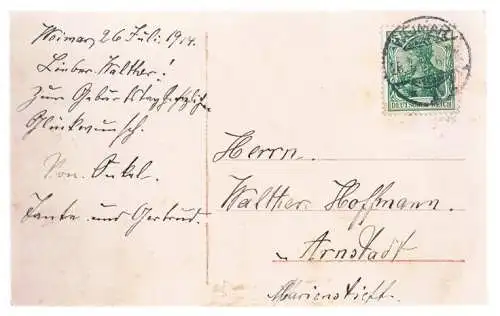 Weimar, 26 Juli. 1914.
Lieber Walther!
Zum Geburtstag herzlichen
Glückwunsch.
Von Onkel.
Tante und Gertrud.
WEIMAR
DEUTSCHES REICH
Herrn
Walther Hoffmann.
Arnstadt
Marienstift.